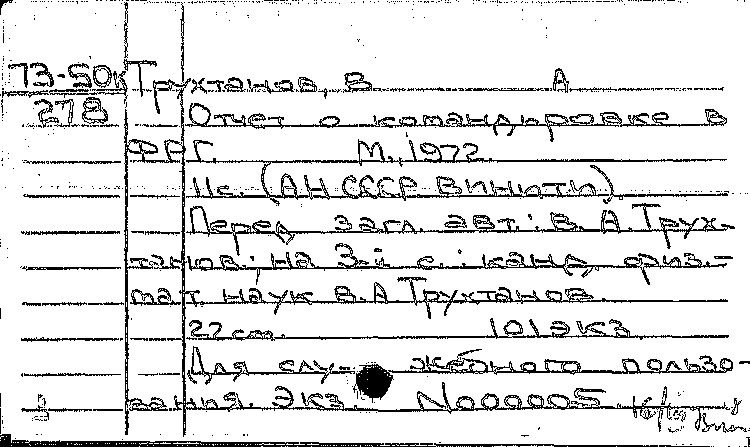 73-50к Трухтанов, В А
278 Отчет о командировке в
ФРГ. М., 1972.
11с. (АН СССР ВИНИТИ).
Перед загл. авт.: В. А. Трух-
танов.; на 3-й с.: канд. физ.-
мат. наук В.А Трухтанов.
22 cm. 101 экз
Для слу- жебного пользо-
вания. Экз. N000005.